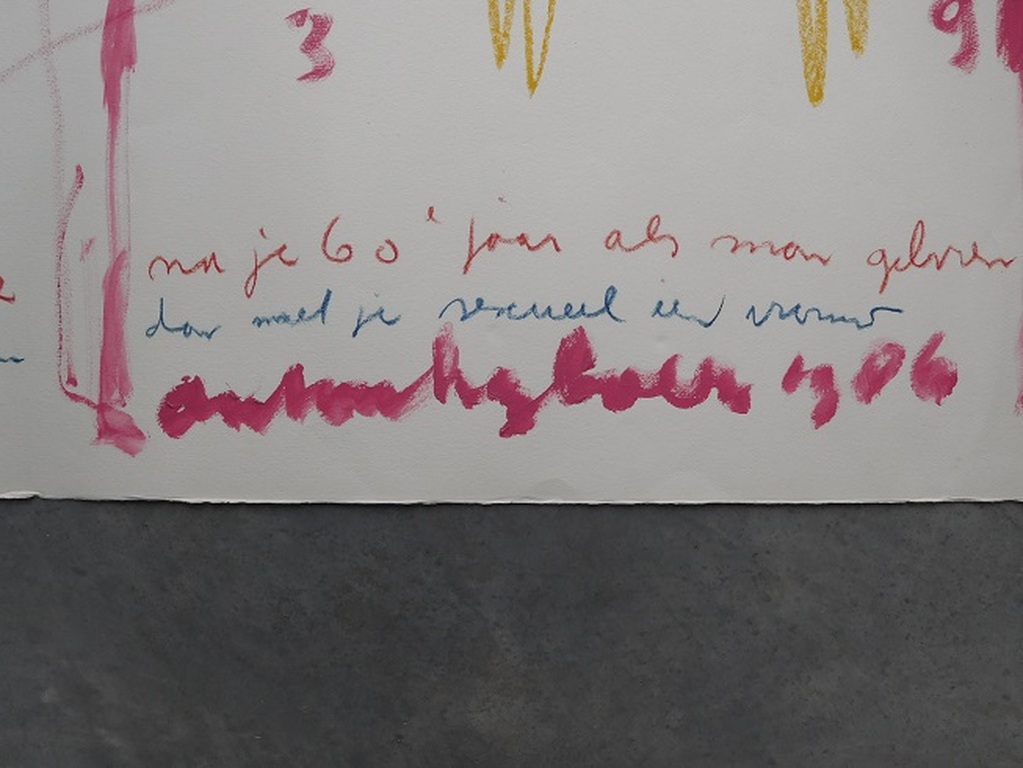 3 9
na je 60' jaar als man geloven
dan moet je sexueel een vrouw
anton heyboer 1986